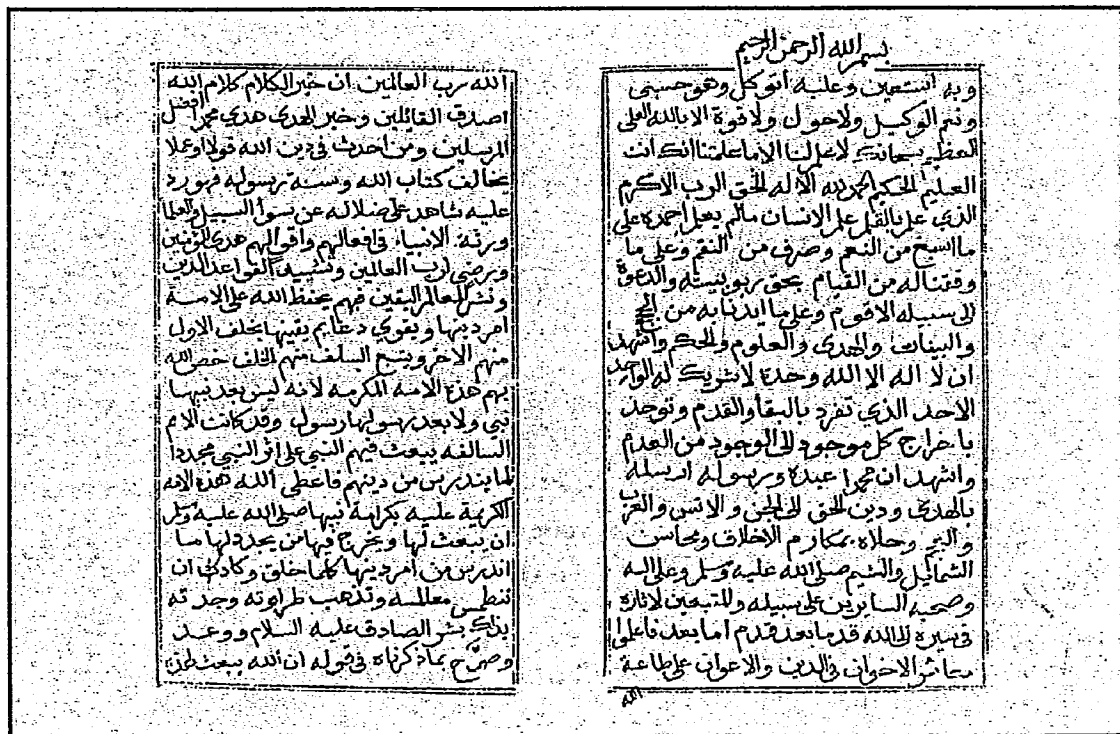 بسم الله الرحمن الرحيم
وبه أستعين وعليه أتوكل وهو حسبي
ونعم الوكيل ولاحول ولا قوة الا بالله العلى
العظيم سبحانك لاعلم لنا الا ما علمتنا انك انت
العليم الحكيم الحمد لله الاله الحق الرب الاكرم
الذي علم بالقلم علم الانسان مالم يعلم احمده على
ما اسبغ من النعم وصرف من النقم وعلى ما
وفقنا له من القيام بحق ربوبيته والدعوة
الى سبيله الاقوم وعلى ما ايدنا به من
والبينات والهدى والعلوم والحكم واشهد
ان لا اله الا الله وحده لاشريك له الواحد
الاحد الذي تفرد بالبقا والقدم وتوحد
باخراج كل موجود الى الوجود من العدم
واشهد ان محمدا عبده ورسوله ارسله
بالهدى ودين الحق الى الجن والانس والعرب
والعجم وحلاه بمكارم الاخلاق ومحاسن
الشمائيل والشيم صلى الله عليه وسلم وعلى اله
وصحبه السايرين على سبيله والمتبعين لاثاره
في سيره الى الله قدما بعد قدم اما بعد فاعلموا
معاشر الاخوان في الدين والاعوان على طاعة
الله
الله رب العالمين ان خير الكلام كلام الله
اصدق القائلين وخير الهدى هدى محمد افضل
المرسلين ومن احدث في دين الله قولا وعملا
يخالف كتاب الله وسنة رسوله فهو رد
عليه شاهد على ضلاله عن سوآ السبيل والعلما
ورثة الانبياء في افعالهم واقوالهم هدى
ورضي لرب العالمين وتشييد القواعد الدين
ونشر المعالم اليقين فبهم يحفظ الله على الامة
امر دينها ويقوي دعايم يقينها يخلف الاول
منهم الاخر ويتبع السلف منهم الخلف خص الله
بهم هذه الامه المكرمه لانه ليس بعد نبيها
نبي ولا بعد رسولها رسول وقد كانت الامم
السالفه يبعث فيهم النبي على اثر النبي مجددا
لما يندرس من دينهم فاعطى الله هذه الامه
الكريمة عليه بكرامة نبيها صلى الله عليه وسلم
ان يبعث لها ويخرج فيها من يجدد لها ما
اندرس من امر دينها كلما خلق وكادت ان
تنطمس معالمه وتذهب طراوته وجدته
بذلك بشر الصادق عليه السلام ووعد
وصرح بما ذكرناه في قوله ان الله يبعث لهذه